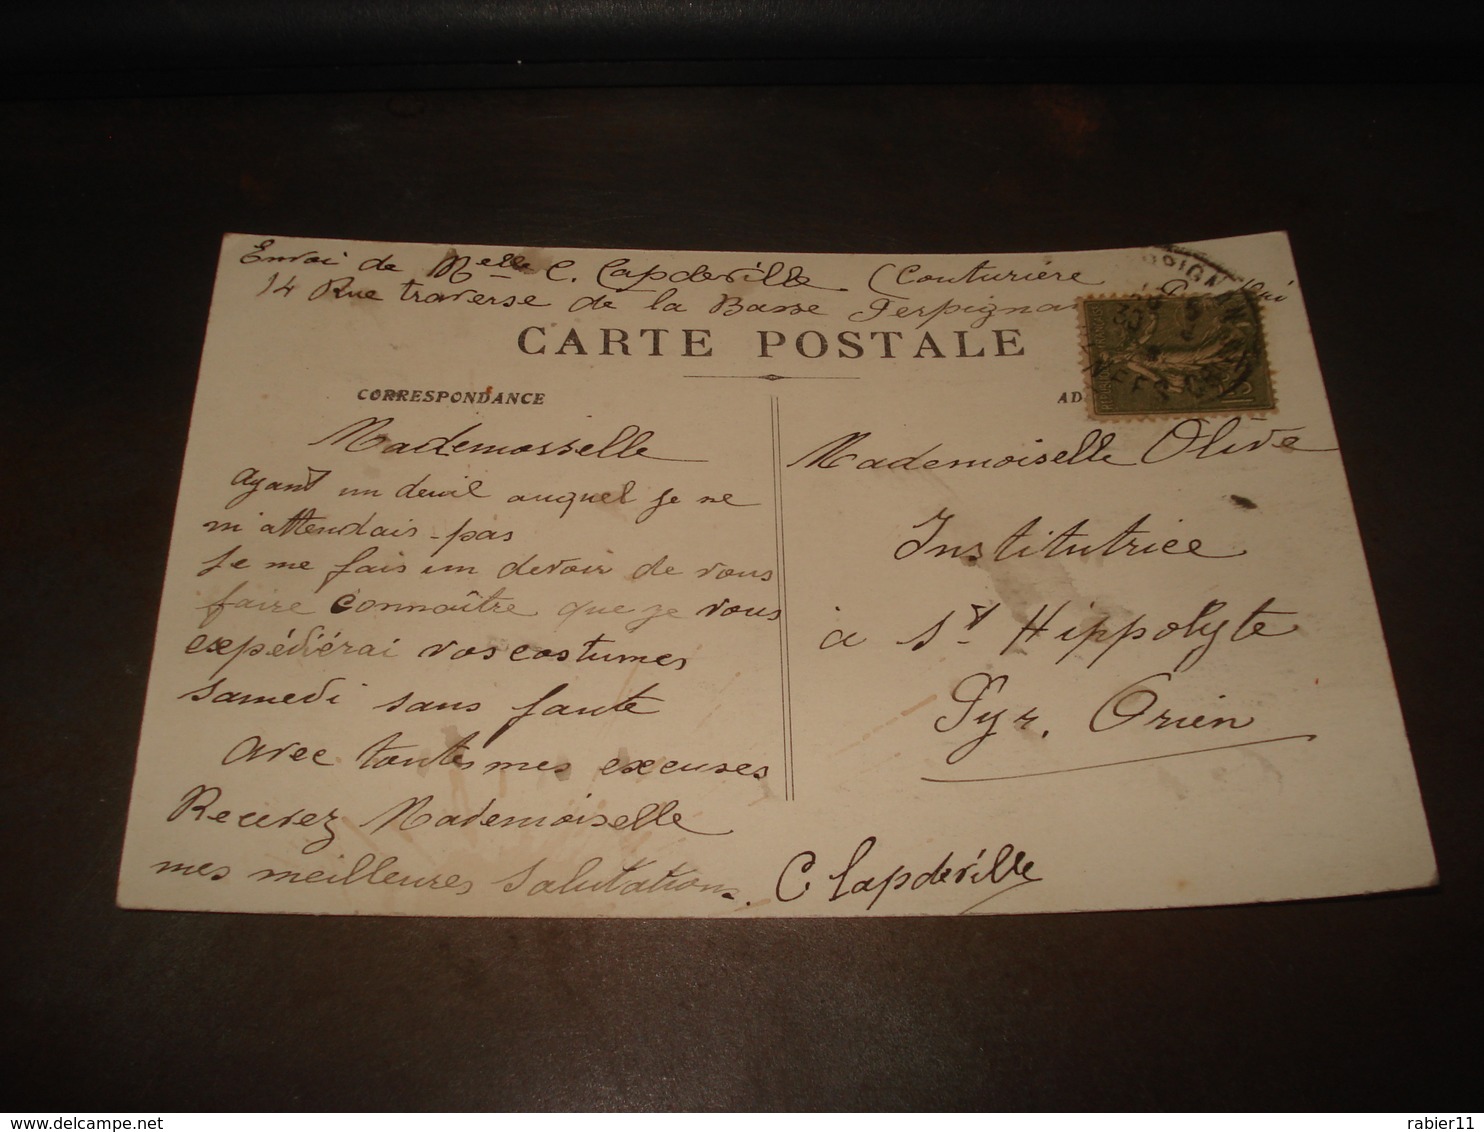 Envoi de Melle C. Capdeville (Couturière
14 Rue traverse de la Basse Perpignan
CARTE POSTALE
CORRESPONDANCE
Mademosselle
ayant un deuil auquel je ne
m'attendais pas
Je me fais un devoir de vous
faire connaître que je vous
expédiérai vos costumes
samedi sans faute
avec toutes mes excuses
Recevez Mademoiselle
mes meilleures Salutations.
C Capdeville
AD
Mademoiselle Olive
Institutrice
à St Hippolyte
Pyr. Orien
rabier11